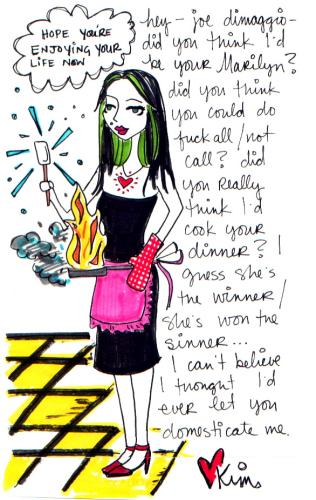 HOPE YOU'RE
ENJOYING YOUR
LIFE NOW
hey - joe dimaggio -
did you think I'd
be your Marilyn?
did you think
you could do
fuck all/not
call? did
you Really
think I'd
cook your
dinner? I
guess she's
the winner/
she's won the
sinner...
I can't believe
I thought I'd
ever let you
domesticate me.
Kim